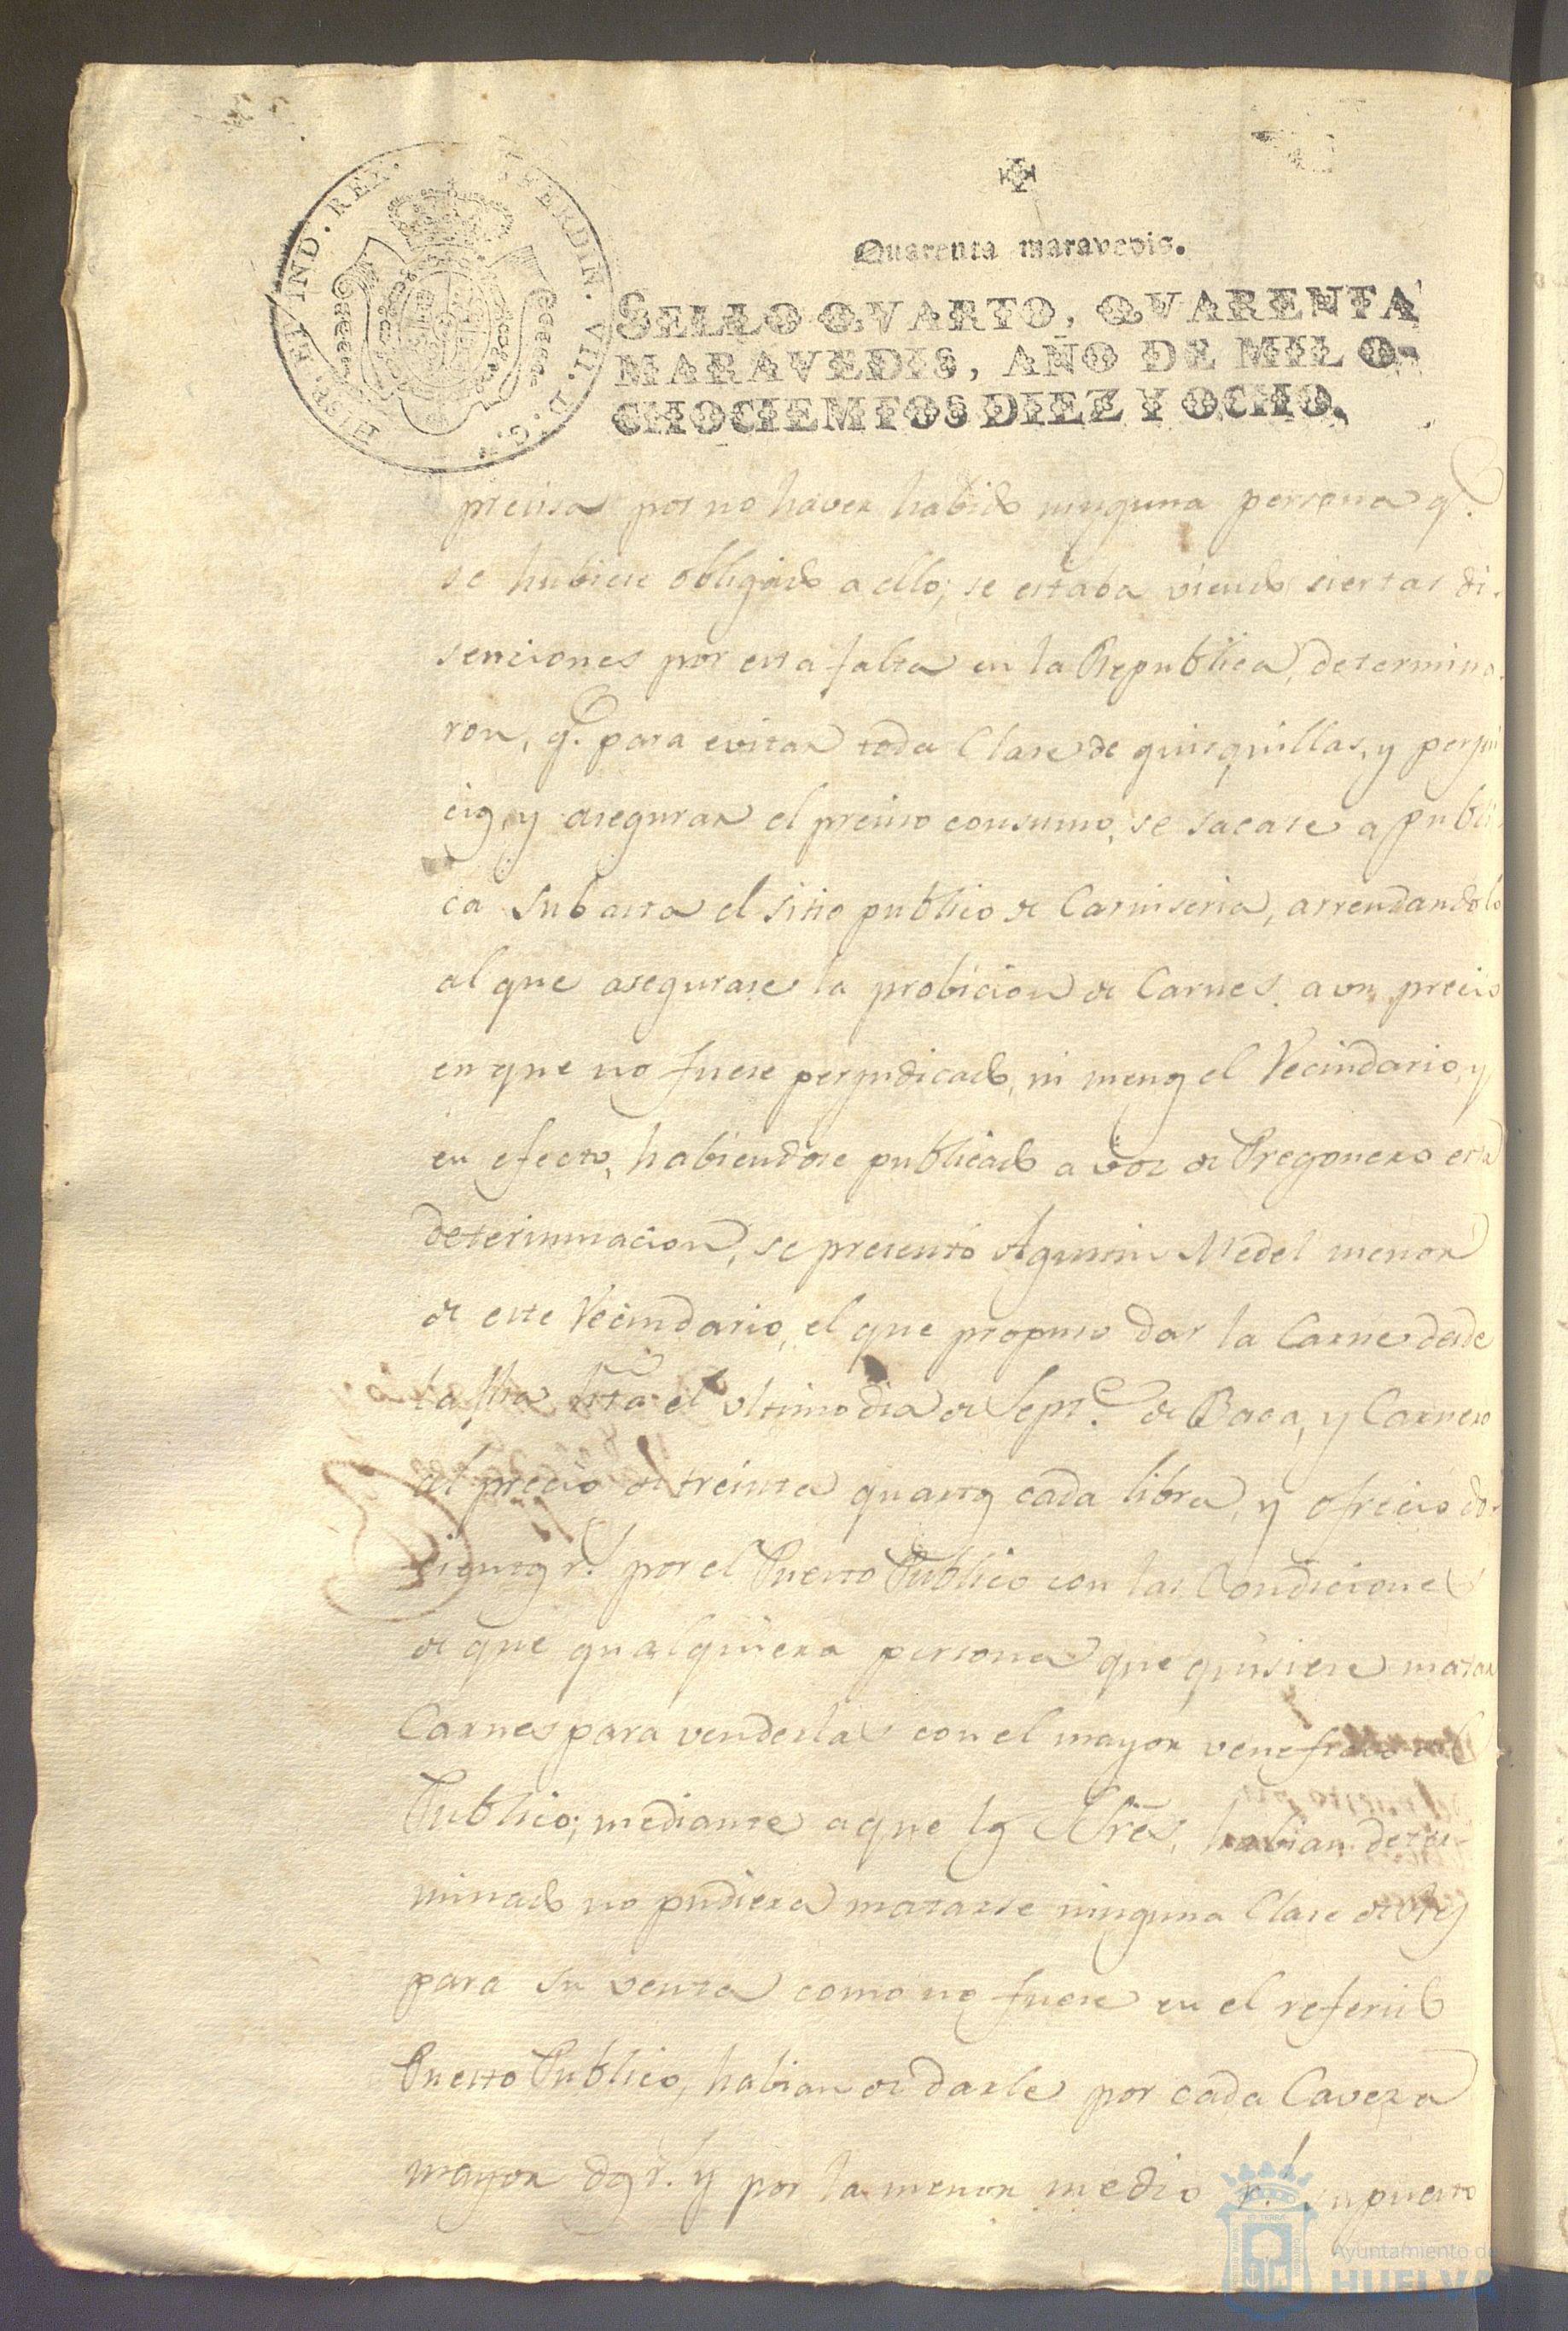 FERDIN. VII. D. G. HISP. ET IND. REX.
Quarenta maravedis.
SELLO QVARTO, QVARENTA
MARAVEDIS, AÑO DE MIL O-
CHOCIENTOS DIEZ Y OCHO.
precisa por no haver habido ninguna persona q.e
se hubiese obligado a ello; se estaba viendo siertas di-
senciones por esta falta en la Republica, determina-
ron, q.e para evitar toda Clase de quisquillas, y perjui
cios, y asegurar el preciso consumo, se sacase a publi
ca Subasta el sitio publico de Carniseria, arrendandolo
al que asegurase la probicion de Carnes a un precio
en que no fuese perjudicado, ni menos el Vecindario, y
en efecto, habiendose publicado a voz de Pregonero esta
determinacion, se presentó Agustin Medel menor
de este Vecindario, el que propuso dar la Carne desde
la fha hta el ultimo dia de Sept.e de Baca, y Carnero
al precio de treinta quartos cada libra, y ofrecio do-
cientos r.s por el Puesto Publico con las Condiciones
de que qualquiera persona que quisiere matar
Carnes para venderlas con el mayor veneficio al
Publico; mediante a que los Sres, habian deter-
minado no pudiera matarse ninguna Clase de Res
para su venta como no fuese en el referido
Puesto Publico, habian de darle por cada Caveza
mayor dos r.s y por la menor medio r.l supuesto
Ayuntamiento de
HUELVA